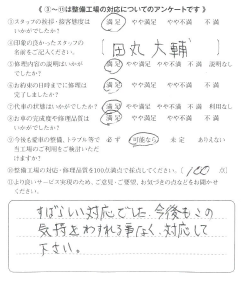 《 ③〜⑪は整備工場の対応についてのアンケートです 》
③スタッフの挨拶・接客態度は 満足 やや満足 やや不満 不満
いかがでしたか？
④印象の良かったスタッフの
お名前をご記入ください。 [ 田丸大輔 ]
⑤修理内容の説明はいかが 満足 やや満足 やや不満 不満 説明なし
でしたか？
⑥お約束の日時までに修理は 満足 やや満足 やや不満 不満
完了しましたか？
⑦代車の状態はいかがでしたか？ 満足 やや満足 やや不満 不満
⑧お車の完成度や修理品質は 満足 やや満足 やや不満 不満
いかがでしたか？
⑨今後も愛車の整備、トラブル等で 必ず 可能なら 未定 ありえない
当工場のご利用をご検討いただ
けますか？
⑩整備工場の対応・修理品質を100点満点で採点してください。[ 100 点]
⑪より良いサービス実現のため、ご意見・ご要望、お気づきの点などをお聞かせ
ください。
すばらしい対応でした。今後もこの
気持をわすれる事なく、対応して
下さい。